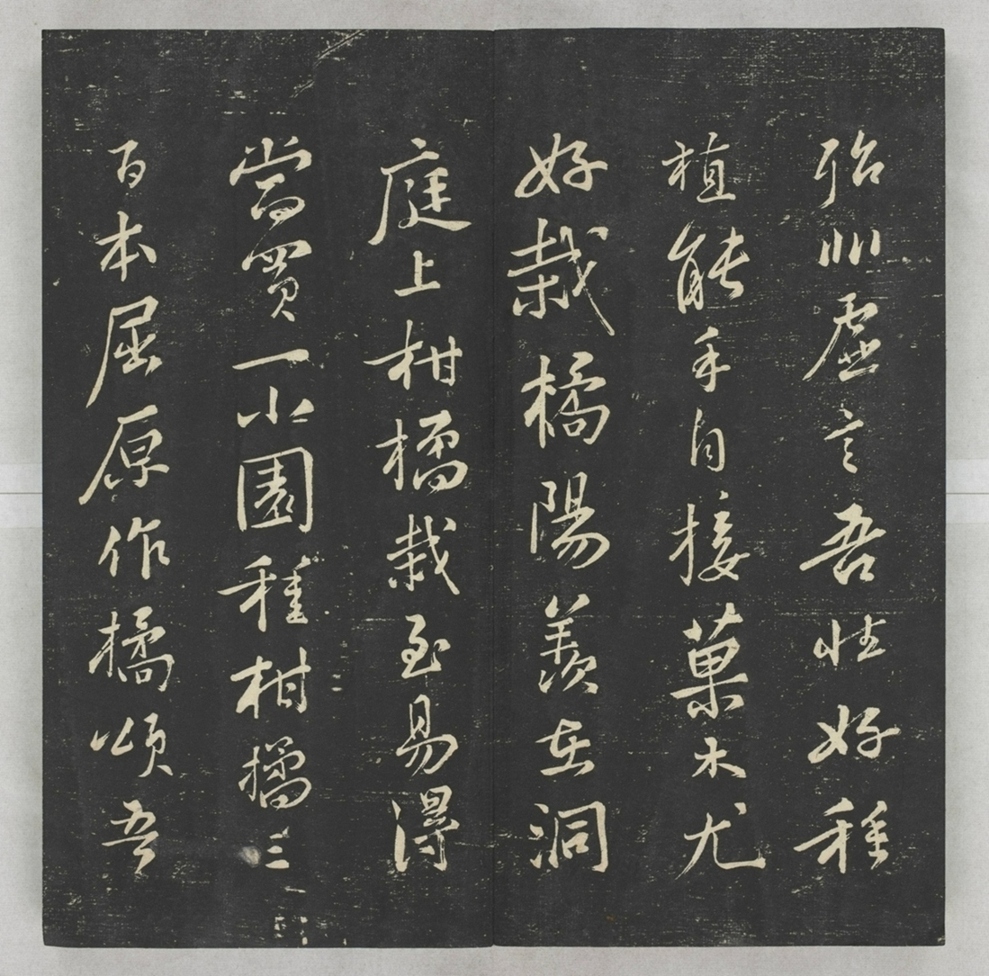 殆非虛言吾性好種
植能手自接菓木尤
好栽橘陽羨在洞
庭上柑橘栽至易得
當買一小園種柑橘三
百本屈原作橘頌吾